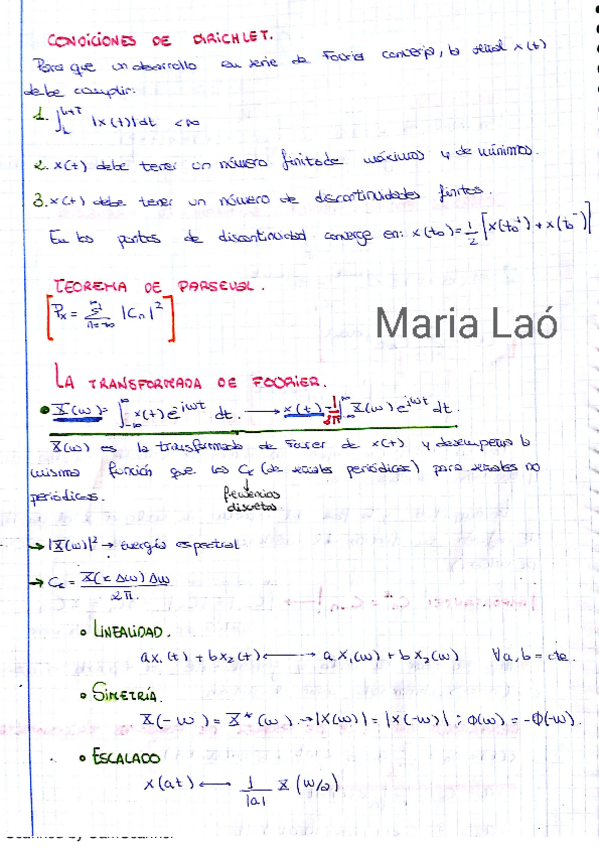 CONDICIONES DE DIRICHLET.
Para que un desarrollo en serie de Fourier converja, la señal x(t)
debe cumplir:
1. ∫ₜ₁^{t₁+T} |x(t)| dt < ∞
2. x(t) debe tener un número finito de máximos y de mínimos.
3. x(t) debe tener un número de discontinuidades finitos.
En los puntos de discontinuidad converge en: x(t₀) = 1/2 [x(t₀⁺) + x(t₀⁻)]
TEOREMA DE PARSEVAL.
[Pₓ = Σ_{n=-∞}^{∞} |Cₙ|²]
Maria Laó
LA TRANSFORMADA DE FOURIER.
• X(ω) = ∫_{-∞}^{∞} x(t) e^{jωt} dt. → x(t) = 1/2π ∫_{-∞}^{∞} X(ω) e^{jωt} dt.
X(ω) es la transformada de Fourier de x(t) y desempeña la
misma función que los Cₖ (de señales periódicas) para señales no
periódicas.
↓
frecuencias
discretas
→ |X(ω)|² → energía espectral
→ Cₖ = X(k Δω) Δω / 2π.
• LINEALIDAD.
ax₁(t) + bx₂(t) ⟷ aX₁(ω) + bX₂(ω) ∀a,b = cte.
• SIMETRÍA.
X(-ω) = X*(ω). → |X(ω)| = |X(-ω)| ; Φ(ω) = -Φ(-ω).
• ESCALADO
x(at) ⟷ 1/|a| X(ω/a)